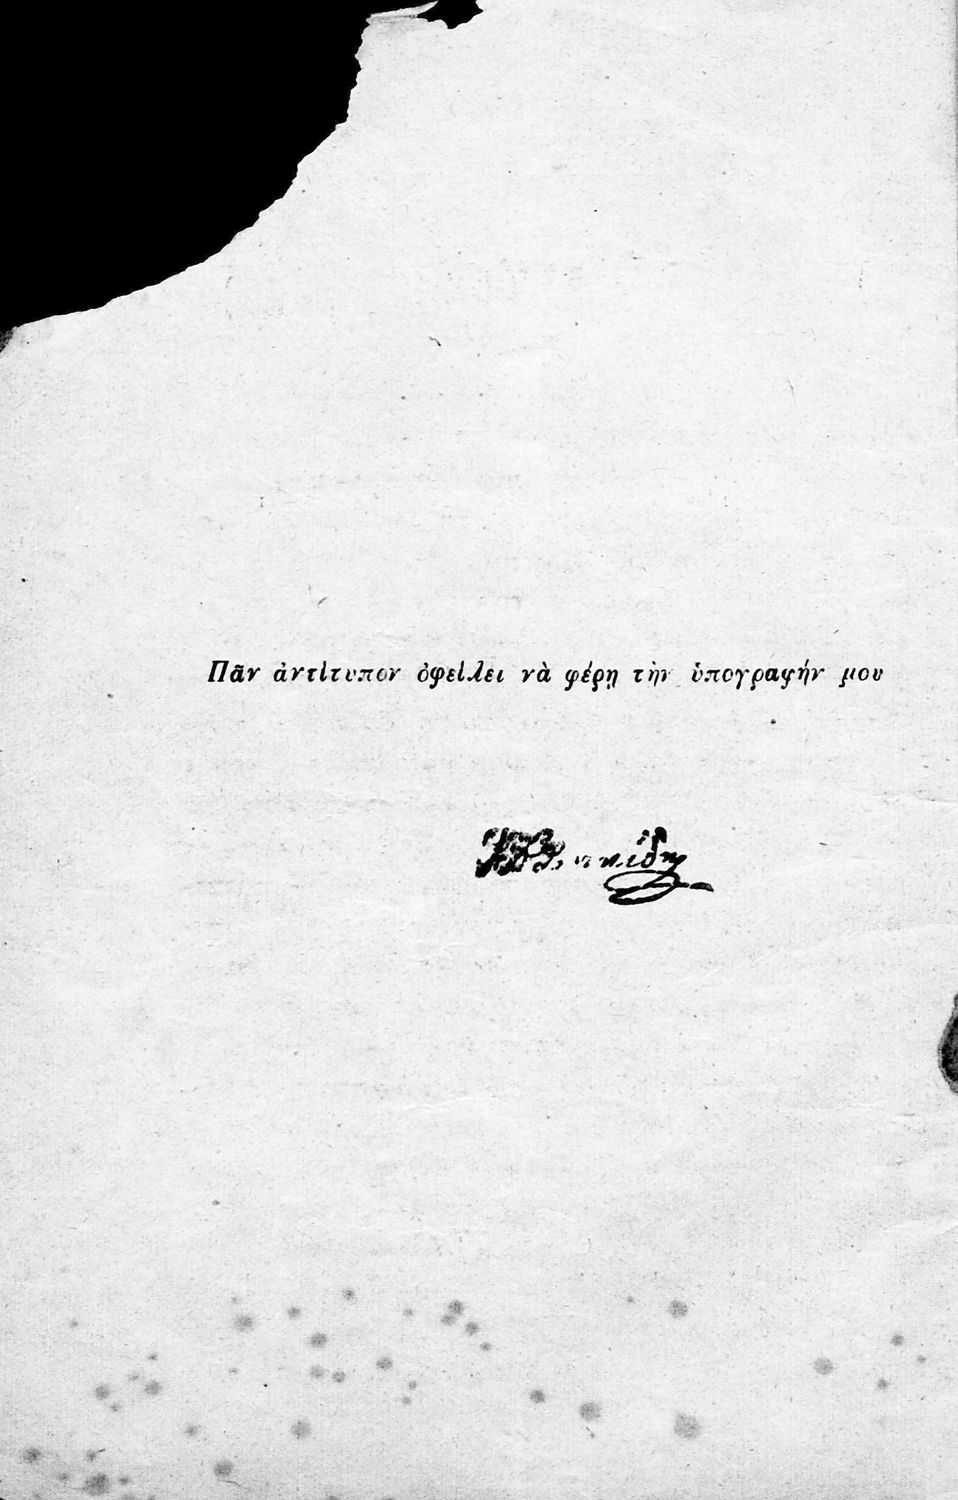 Πᾶν ἀντίτυπον ὀφείλει νὰ φέρῃ τὴν ὑπογραφήν μου